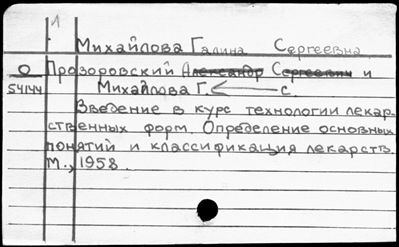 1
Михайлова Галина Сергеевна
О Прозоровский Александр Сергеевич и
54144 Михайлова Г. с.
Введение в курс технологии лекар-
ственных форм. Определение основных
понятий и классификация лекарств.
М., 1958.